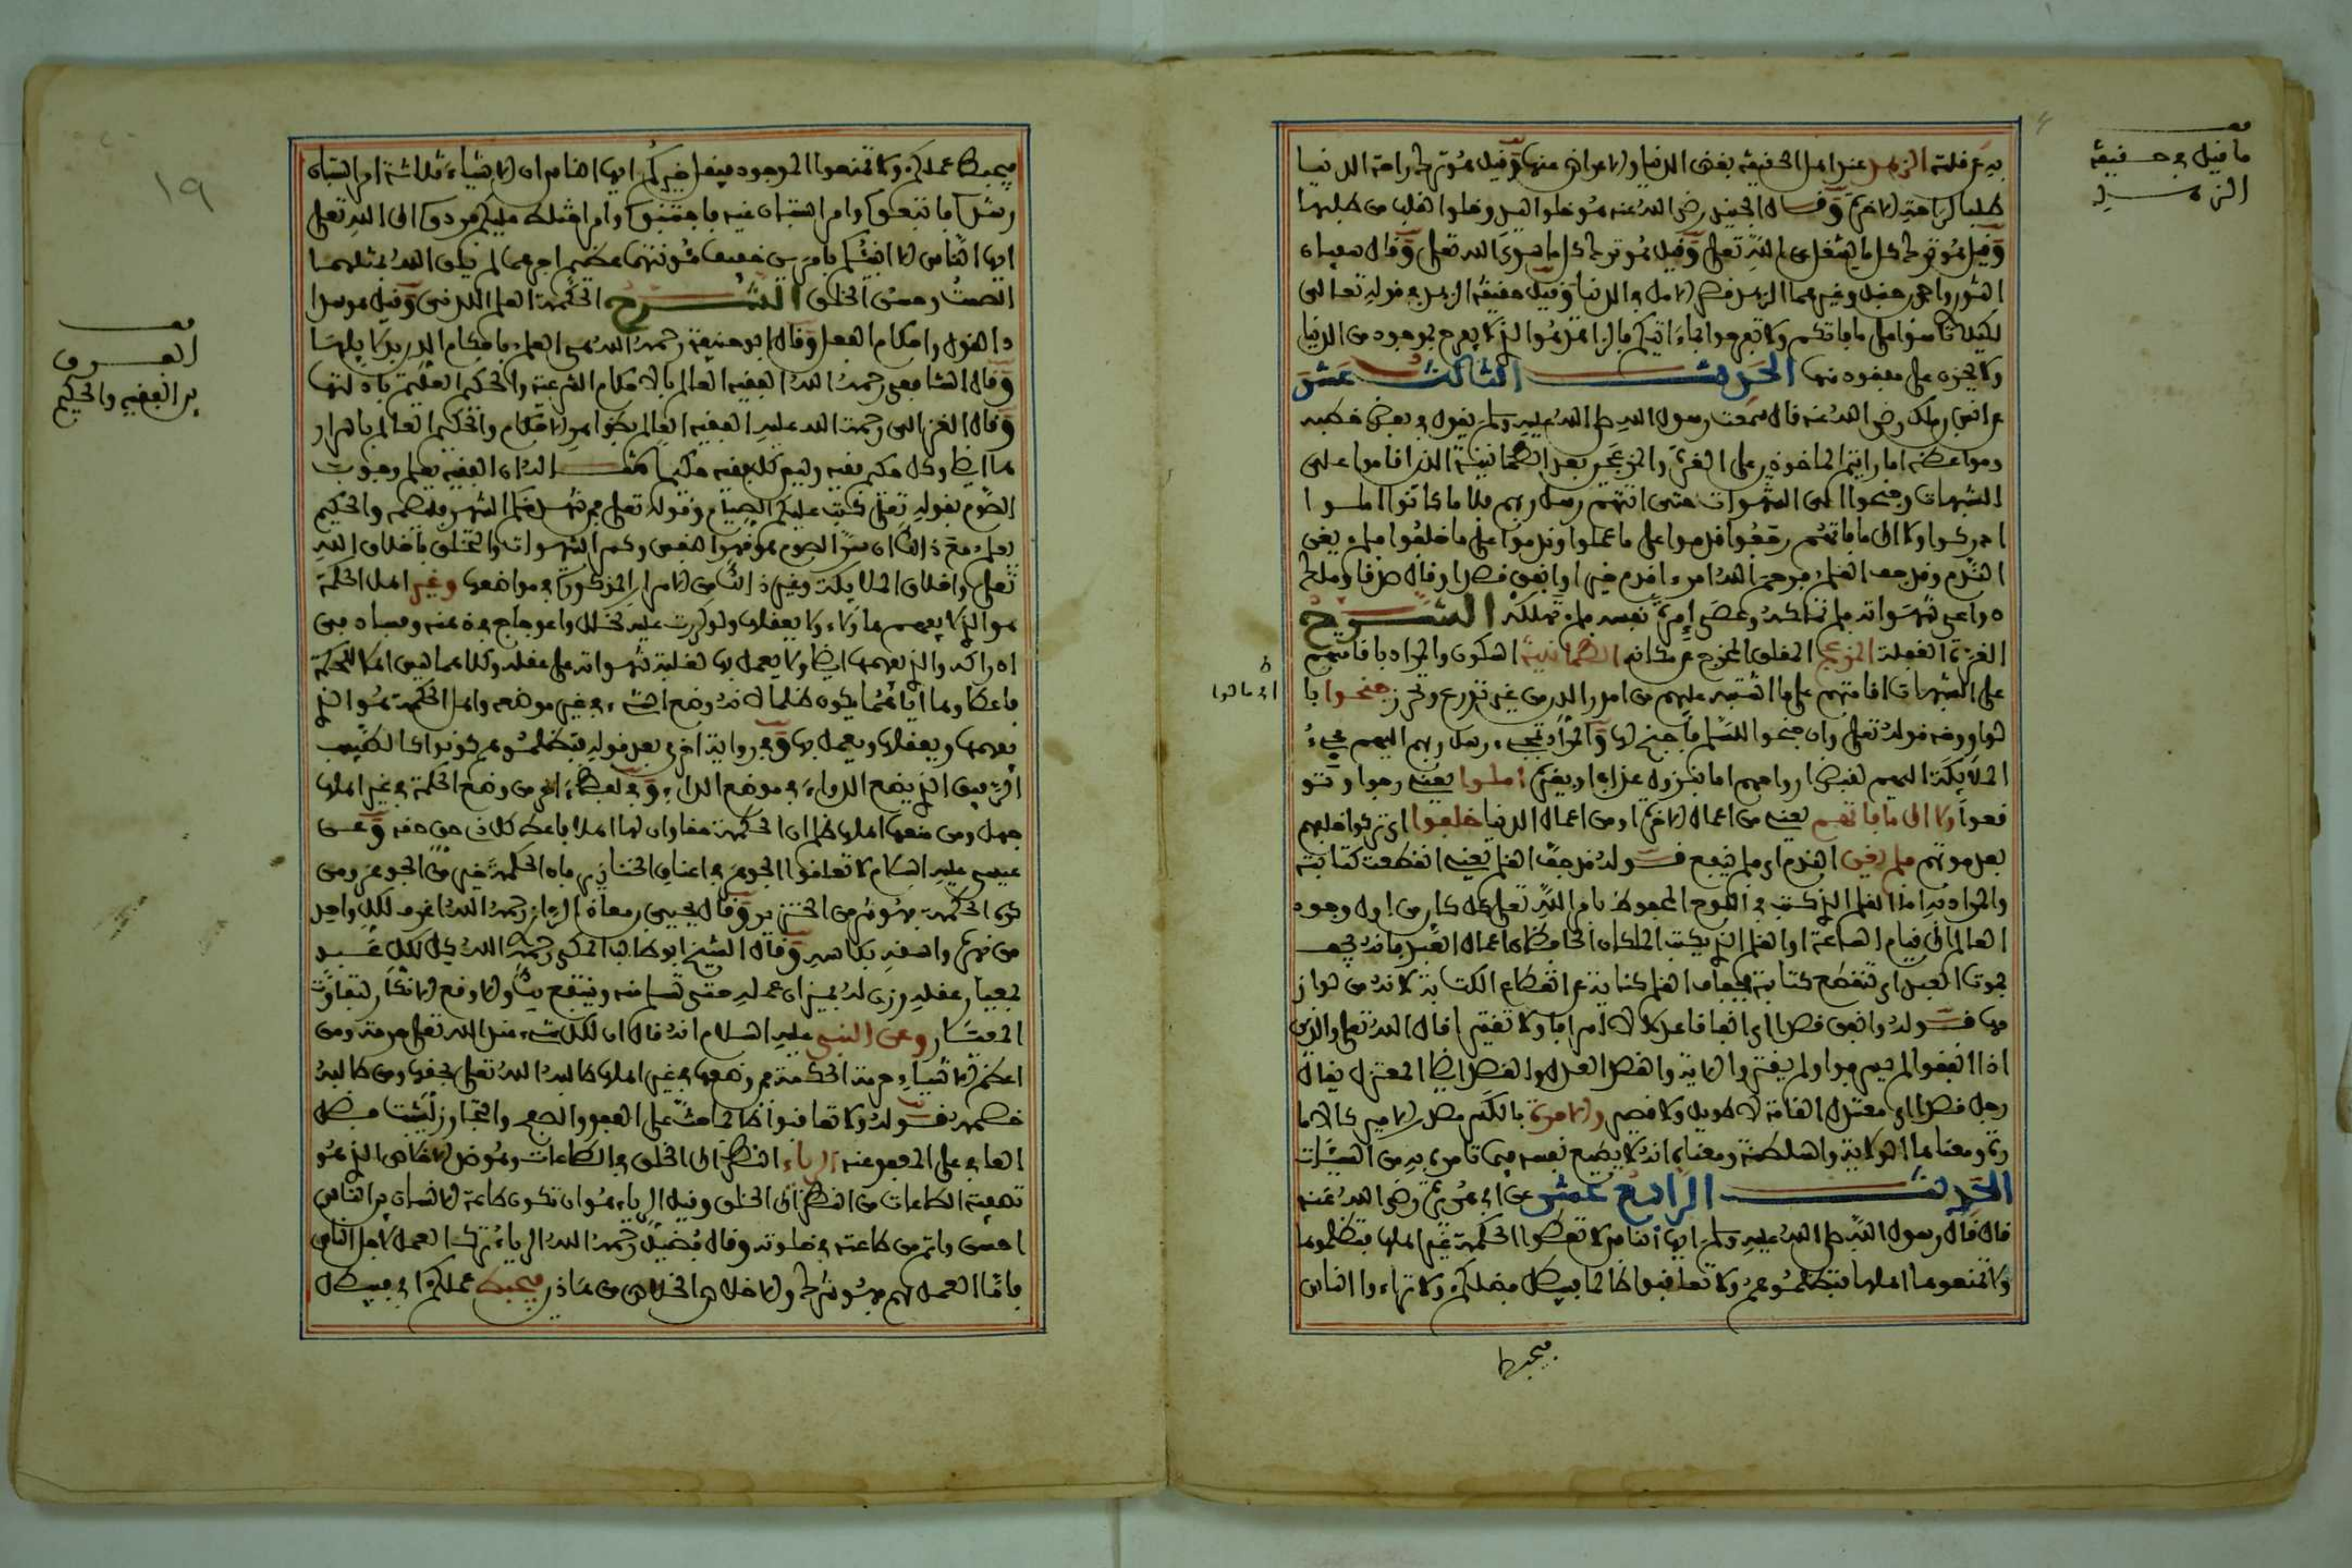 ما قيل في حقيقة
الزهد
يده عن قلته الزهد عند اهل الحقيقة بغض الدنيا والاعراض عنها وقيل هو ترك راحة الدنيا
طلبا لراحة الاخرة وقال الجنيد رضي الله عنه هو خلوا اليد وخلوا القلب من طلبها
وقيل هو ترك كل ما يشغل عن الله تعلى وقيل هو ترك كل ما سوى الله تعلى وقال سفيان
الثوري واحمد بن حنبل وغيرهما الزهد قصر الامل في الدنيا وقيل حقيقة الزهد في قوله تعالى
لكيلا تاسوا على ما فاتكم ولا تفرحوا بما ءاتيكم فالزاهد هو الذي لا يفرح بموجود من الدنيا
ولا يحزن على مفقود منها الحديث الثالث عشر
عن انس بن ملك رضي الله عنه قال سمعت رسول الله صلى الله عليه وسلم يقول في بعض خطبه
ومواعظه اما رايتم الماخوذين على الغرة والمزعجين بعد الطمانينة الذين اقاموا على
الشبهات وجنحوا الى الشهوات حتى اتتهم رسل ربهم فلا ما كانوا املوا
ادركوا ولا الى ما فاتهم رجعوا قدموا على ما عملوا وندموا على ما خلفوا ولم يغن
الندم وقد جف القلم فرحم الله امرءا قدم خيرا وانفق قصدا وقال صدقا وملك
دواعي شهواته ولم تملكه وعصى امرة نفسه فلم تهلكه الشرح
الغرة الغفلة المزعج المقلق المخرج عن مكانه الطمانينة السكون والمراد باقامتهم
على الشبهات اقامتهم على ما اشتبه عليهم من امور الدين من غير تورع وتحرز جنحوا ما
اي مالوا
لوا ومنه قوله تعلى وان جنحوا للسلم فاجنح لها والمراد بمجيء رسل ربهم اليهم مجيء
الملايكة اليهم لقبض ارواحهم اما بنزول عذاب او بغيره املوا يعني رجوا وتو
قعوا ولا الى ما فاتهم يعني من اعمال الاخرة او من اعمال الدنيا خلفوا اي تركوا خلفهم
بعد موتهم ولم يغن الندم اي ولم ينفع قوله وقد جف القلم يعني انقطعت كتابته
والمراد به اما القلم الذي كتب في اللوح المحفوظ بامر الله تعلى كل كاين من اول وجود
العالم الى قيام الساعة او القلم الذي يكتب به الملكان الحافظان اعمال العبد فانه يجف
بموت العبد اي تنقطع كتابته فجفاف القلم كناية عن انقطاع الكتابة لانه من لواز
مها قوله وانفق قصدا اي انفاقا عدلا لا اسرافا ولا تقتيرا قال الله تعلى والذين
اذا انفقوا لم يسرفوا ولم يقتروا الاية والقصد العدل والقصد ايضا المعتدل يقال
رجل قصد اي معتدل القامة لا طويل ولا قصير والامرة بالكسر مصدر الامير كالاما
رة ومعناهما الولاية والسلطنة ومعناه انه لا يطيع نفسه فيما تامره به من السيئات
الحديث الرابع عشر عن ابي هريرة رضي الله عنه
قال قال رسول الله صلى الله عليه وسلم ايها الناس لا تعطوا الحكمة غير اهلها فتظلموها
ولا تمنعوها اهلها فتظلموهم ولا تعاقبوا ظالما فيبطل فضلكم ولا تراءوا الناس
فيحبط
١٩
فيحبط عملكم ولا تمنعوا الموجود فيقل خيركم ايها الناس ان الاشياء ثلاثة امر استبان
رشده فاتبعوه وامر استبان غيه فاجتنبوه وامر اختلف عليكم فردوه الى الله تعلى
ايها الناس الا انبئكم بامرين خفيف مؤنتهما عظيم اجرهما لم يلق الله بمثلهما
الصمت وحسن الخلق الشرح الحكمة العلم اللدني وقيل هو سدا
د القول واحكام الفعل وقال ابو حنيفة رحمه الله هي العلم باحكام الدين بدلايلها
وقال الشافعي رحمه الله الفقيه العالم بالاحكام الشرعية والحكيم العليم بادلتها
وقال الغزالي رحمة الله عليه الفقيه العالم بظواهر الاحكام والحكيم العالم باسرار
ها ايضا وكل حكيم فقيه وليس كل فقيه حكيما مثاله ان الفقيه يعلم وجوب
الصوم بقوله تعلى كتب عليكم الصيام وقوله تعلى فمن شهد منكم الشهر فليصمه والحكيم
يعلم مع ذلك ان سر الصوم هو قهر النفس وكسر الشهوات والتخلق باخلاق الله
تعلى واخلاق الملايكة وغير ذلك من الاسرار المذكورة في مواضعها وغير اهل الحكمة
هو الذي لا يفهمها ولا يعقلها ولو كررت عليه لخلل واعوجاج في ذهنه وفساد في
ادراكه والذي يفهمها ايضا ولا يعمل بها لغلبة شهواته على عقله وكلاهما ليس اهلا للحكمة
فاعطاوها اياهما يكون ظلما لانه وضع الشيء في غير موضعه واهل الحكمة هو الذي
يفهمها ويعقلها ويعمل بها وفي رواية اخرى بعد قوله فتظلموهم كونوا كالطبيب
الرفيق الذي يضع الدواء في موضع الداء وفي لفظ اخر من وضع الحكمة في غير اهلها
جهل ومن منعها اهلها ظلم ان للحكمة حقا وان لها اهلا فاعط كل ذي حق حقه وعن
عيسى عليه السلام لا تعلقوا الجوهر في اعناق الخنازير فان الحكمة خير من الجوهر ومن
كره الحكمة فهو شر من الخنزير وقال يحيى بن معاذ الرازي رحمه الله اغرف لكل واحد
من نهره واسقه بكاسه وقال الشيخ ابو طالب المكي رحمه الله كل لكل عبد
بمعيار عقله وزن له بميزان عمله حتى تسلم منه وينتفع بك والا وقع الانكار لتفاوت
المعيار وعن النبي عليه السلام انه قال ان لكل شيء عند الله تعلى حرمة ومن
اعظم الاشياء حرمة الحكمة فمن وضعها في غير اهلها طالبه الله تعلى بحقها ومن طالبه
خصمه قوله ولا تعاقبوا ظالما حث على العفو والصفح والتجاوز ليثبت فضل
العافي على المعفو عنه الرياء النظر الى الخلق في الطاعات وهو ضد الاخلاص الذي هو
تصفية الطاعات من النظر الى الخلق وقيل الرياء هو ان تكون طاعة الانسان بين الناس
احسن واتم من طاعته في خلوته وقال فضيل رحمه الله الرياء ترك العمل لاجل الناس
فاما العمل لهم فهو شرك والاخلاص الخلاص من هاذين فيحبط عملكم اي فيبطل
الفرق
بين الفقيه والحكيم